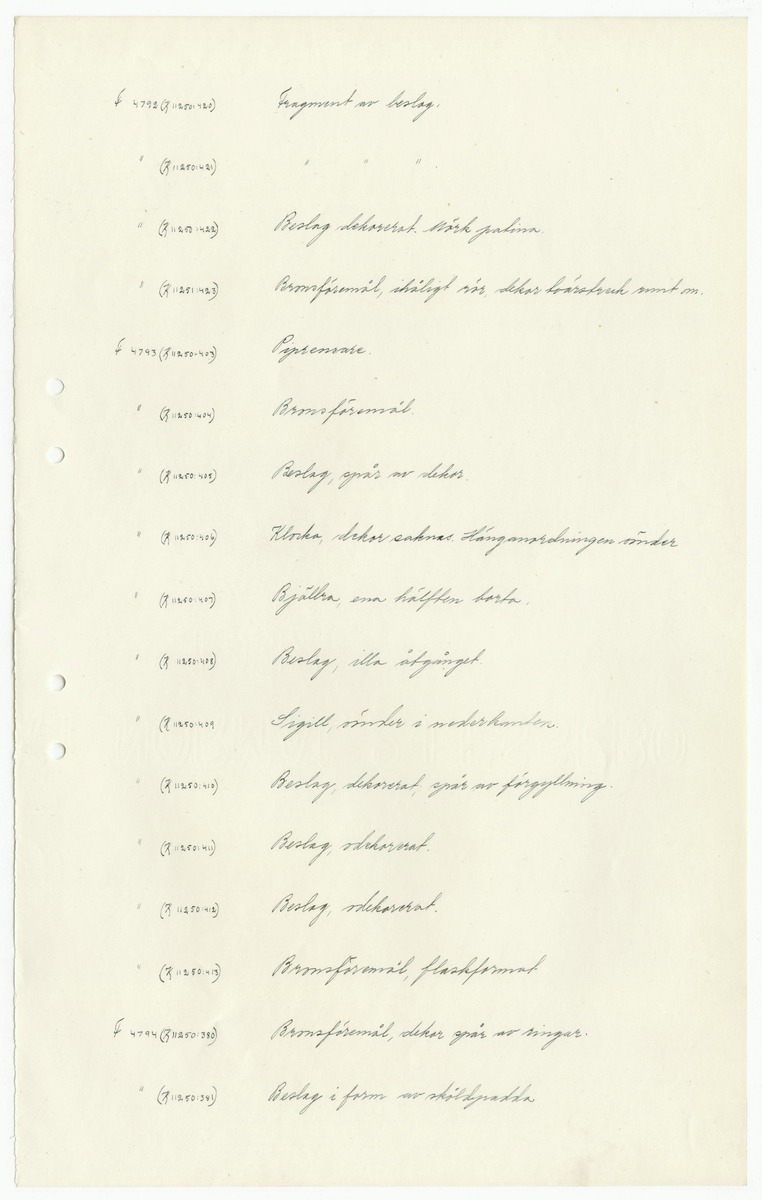 F 4792 (K 11250:420) Fragment av beslag.
" (K 11250:421) " " " .
" (K 11250:422) Beslag dekorerat. Mörk patina.
" (K 11251:423) Bronsföremål, ihåligt rör, dekor tvärstreck runt om.
F 4793 (K 11250:403) Piprensare.
" (K 11250:404) Bronsföremål.
" (K 11250:405) Beslag, spår av dekor.
" (K 11250:406) Klocka, dekor saknas. Hänganordningen sönder
" (K 11250:407) Bjällra, ena hälften borta.
" (K 11250:408) Beslag, illa åtgånget.
" (K 11250:409 Sigill, sönder i nederkanten.
" (K 11250:410) Beslag, dekorerat, spår av förgyllning.
" (K 11250:411) Beslag, odekorerat.
" (K 11250:412) Beslag, odekorerat.
" (K 11250:413) Bronsföremål, flaskformat
F 4794 (K 11250:380) Bronsföremål, dekor spår av ringar.
" (K 11250:381) Beslag i form av sköldpadda